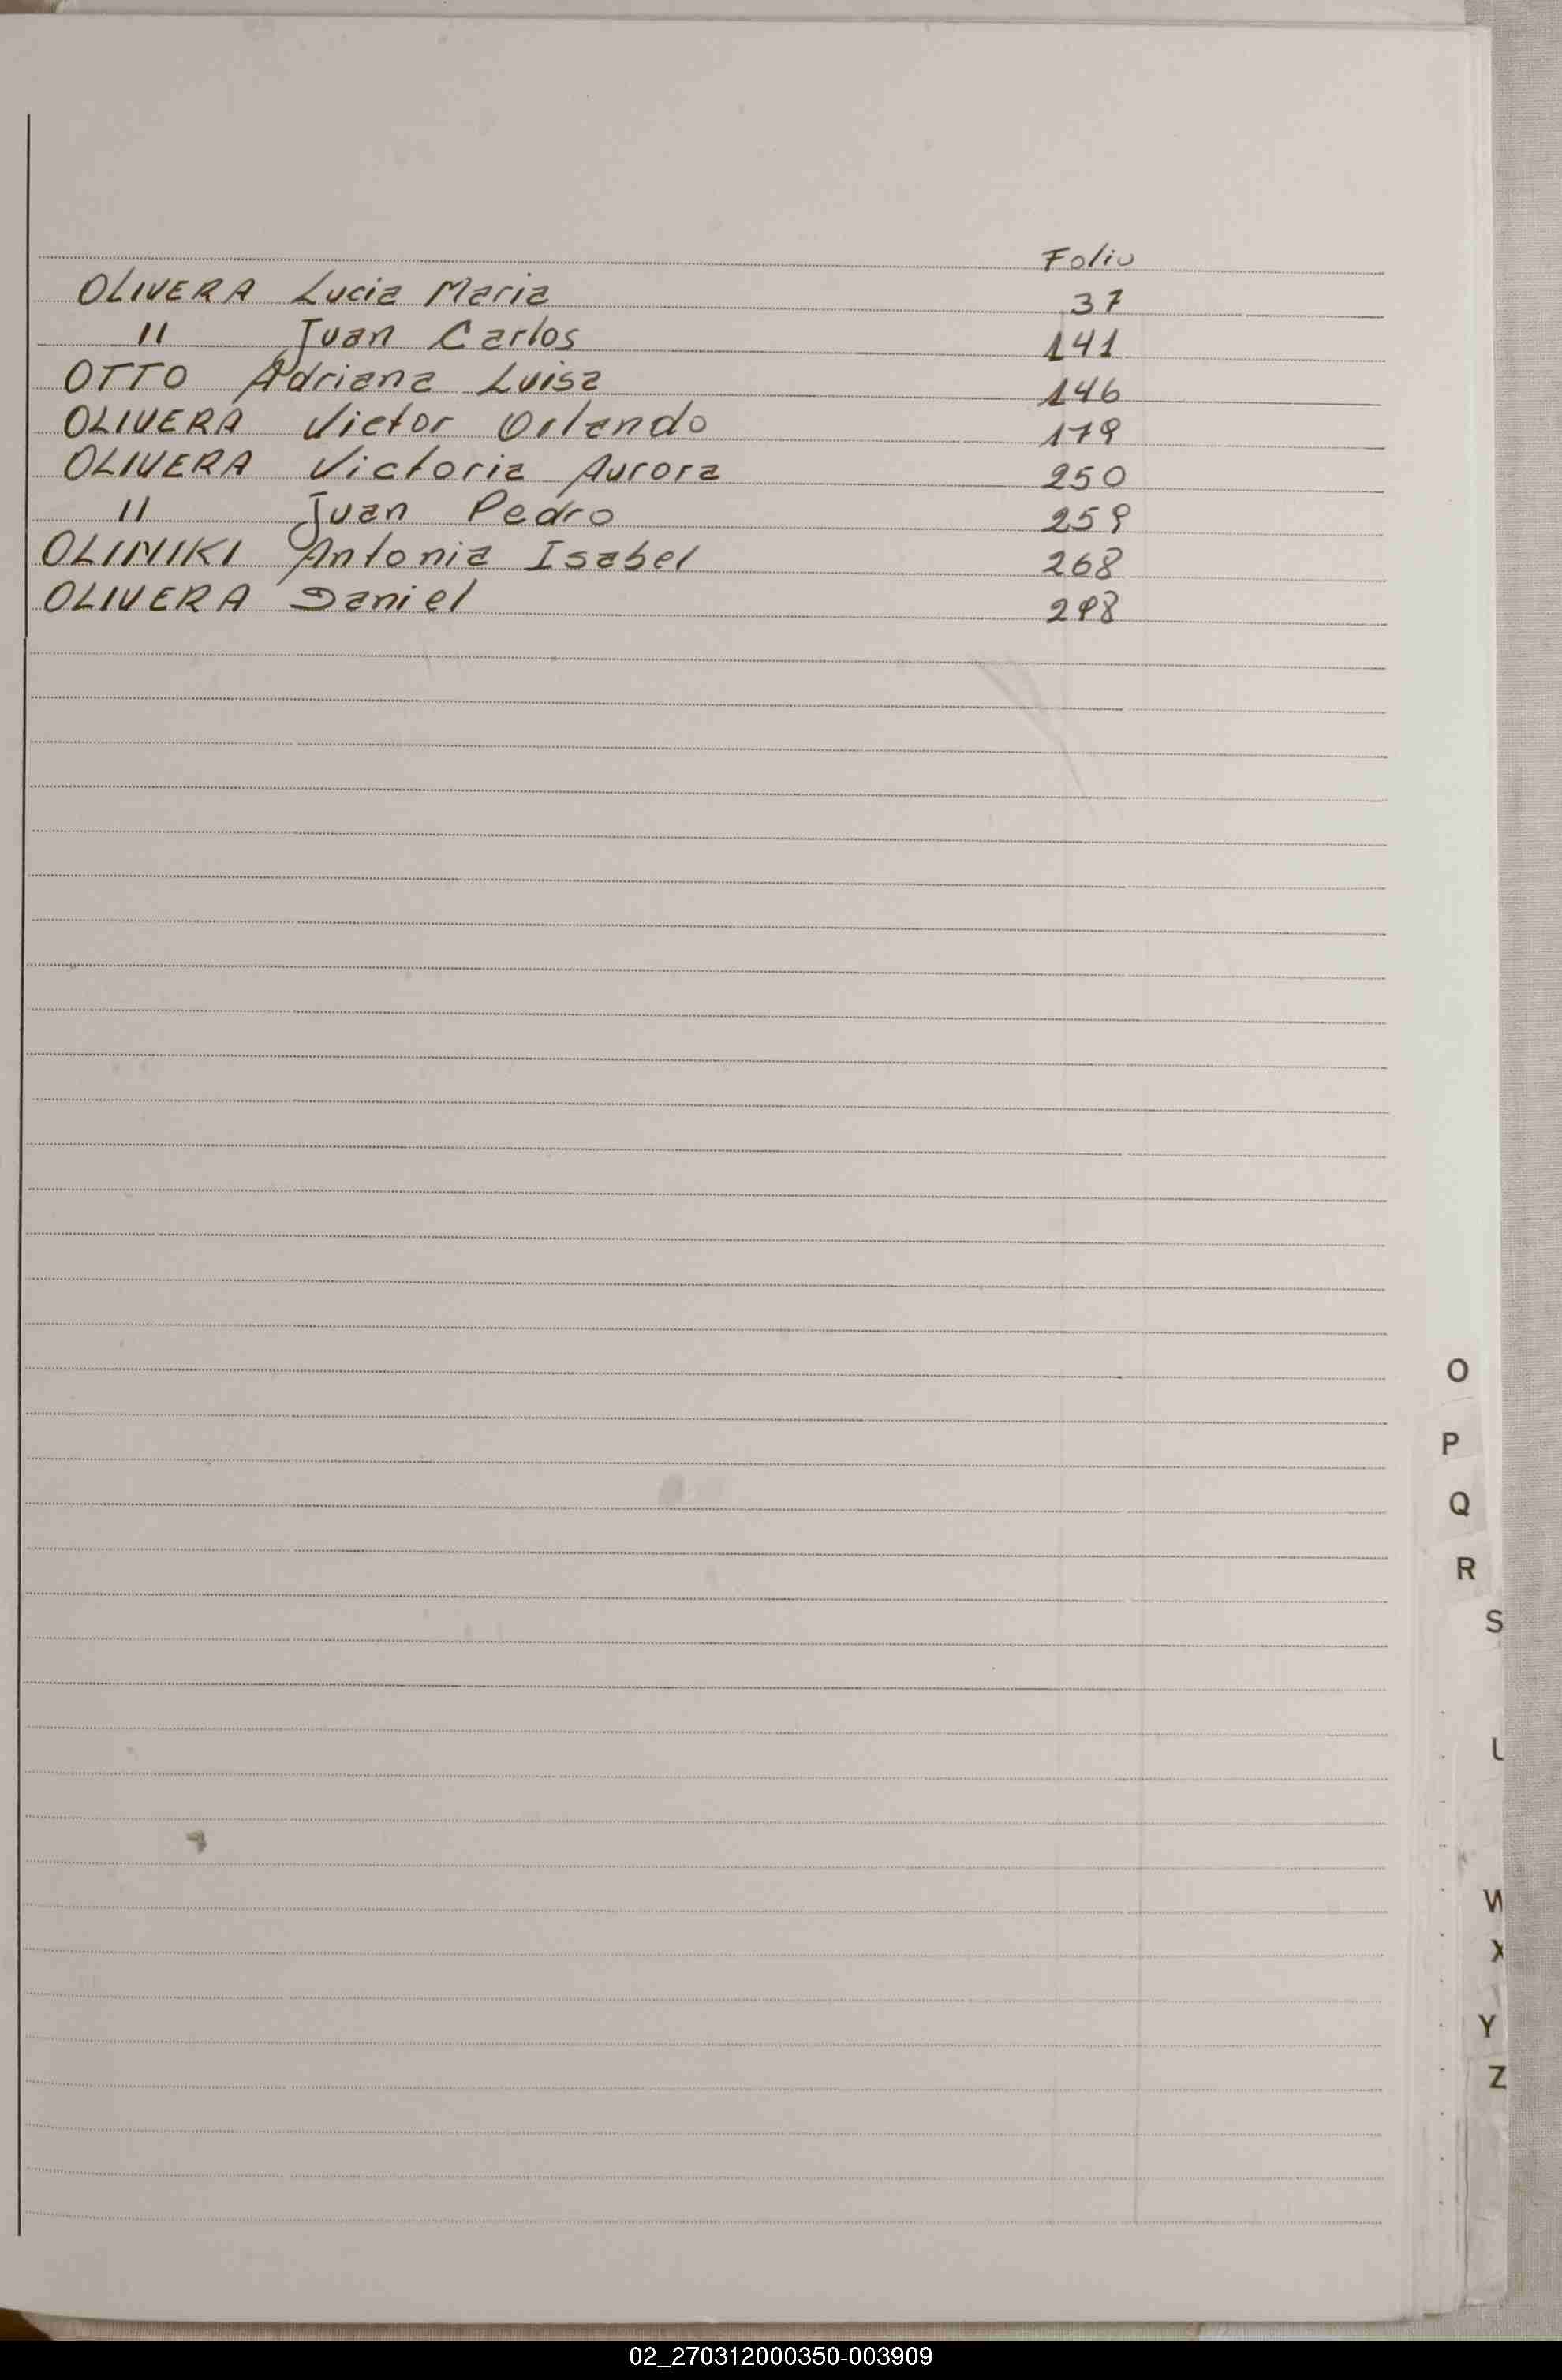 Folio
OLIVERA Lucia Maria 37
" Juan Carlos 141
OTTO Adriana Luisa 146
OLIVERA Victor Orlando 179
OLIVERA Victoria Aurora 250
" Juan Pedro 259
OLINIKI Antonia Isabel 268
OLIVERA Daniel 298
O
P
Q
R
S
U
W
X
Y
Z
02_270312000350-003909